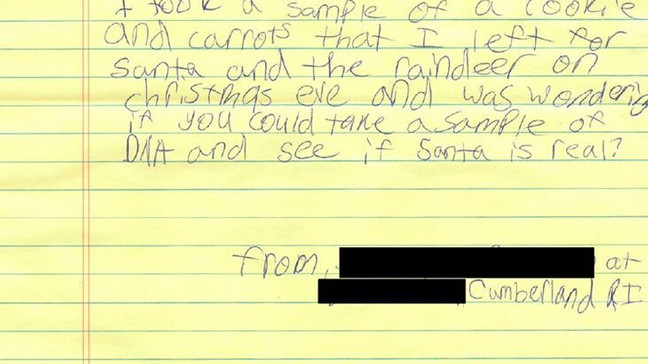 I took a sample of a cookie
and carrots that I left for
Santa and the raindeer on
christmas eve and was wondering
if you could take a sample of
DNA and see if Santa is real?
from, at
Cumberland RI